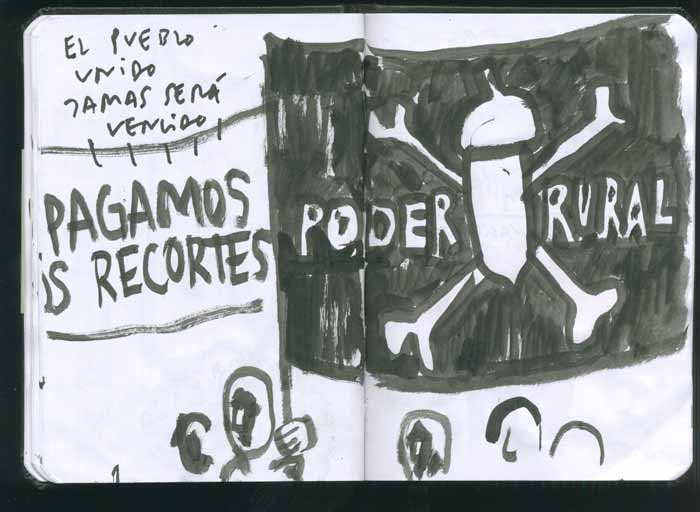 EL PUEBLO
UNIDO
JAMAS SERÁ
VENCIDO
PAGAMOS
S RECORTES
PODER RURAL